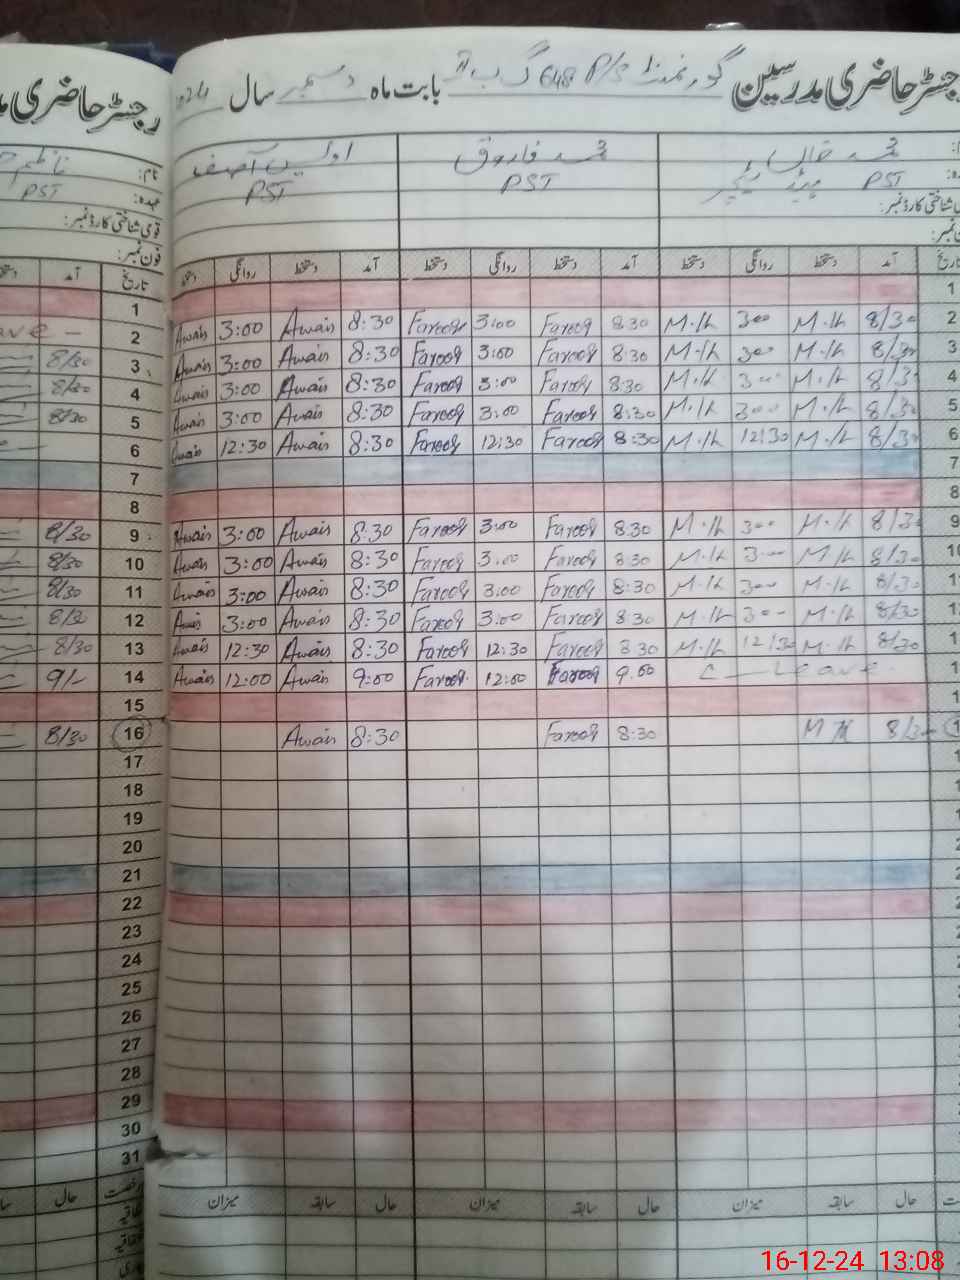 رجسٹر حاضری مدرسین گورنمنٹ P/S 648 گ ب بابت ماہ دسمبر سال 2024
رجسٹر حاضری
نام: محمد فاروق اویس آصف
PST ہیڈ ٹیچر PST PST
قومی شناختی کارڈ نمبر:
فون نمبر:
نام: ناظم
عہدہ: PST
قومی شناختی کارڈ نمبر:
فون نمبر:
تاریخ آمد دستخط روانگی دستخط آمد دستخط روانگی دستخط آمد دستخط روانگی دستخط تاریخ آمد دستخط
1
2 8/30 M.lk 300 M.lk 8:30 Farooq 3:00 Farooq 8:30 Awais 3:00 Awais 2
3 8/30 M.lk 300 M.lk 8:30 Farooq 3:00 Farooq 8:30 Awais 3:00 Awais 3 8/30
4 8/3 M.lk 300 M.lk 8:30 Farooq 3:00 Farooq 8:30 Awais 3:00 Awais 4 8/30
5 8/3 M.lk 300 M.lk 8:30 Farooq 3:00 Farooq 8:30 Awais 3:00 Awais 5 8/30
6 8/30 M.lk 12:30 M.lk 8:30 Farooq 12:30 Farooq 8:30 Awais 12:30 Awais 6
7 7
8 8
9 8/3 M.lk 300 M.lk 8:30 Farooq 3:00 Farooq 8:30 Awais 3:00 Awais 9 8/30
10 8/30 M.lk 300 M.lk 8:30 Farooq 3:00 Farooq 8:30 Awais 3:00 Awais 10 8/30
8/30 M.lk 300 M.lk 8:30 Farooq 3:00 Farooq 8:30 Awais 3:00 Awais 11 8/30
8/30 M.lk 300 M.lk 8:30 Farooq 3:00 Farooq 8:30 Awais 3:00 Awais 12 8/30
8/30 M.lk 12/30 M.lk 8:30 Farooq 12:30 Farooq 8:30 Awais 12:30 Awais 13 8/30
C Leave 9:00 Farooq 12:00 Farooq 9:00 Awais 12:00 Awais 14 9/-
15
8/3 8:30 Farooq 8:30 Awais 16 8/30
17
18
19
20
21
22
23
24
25
26
27
28
29
30
31
حال سابقہ میزان حال سابقہ میزان حال سابقہ میزان رخصت حال
16-12-24 13:08